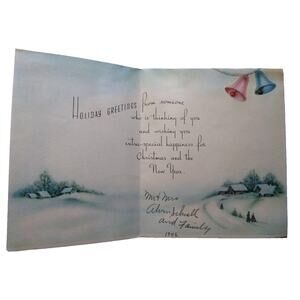 HOLIDAY GREETINGS from someone
who is thinking of you
and wishing you
extra-special happiness for
Christmas and the
New Year.
Mr + Mrs
Alvin
and Family
1946